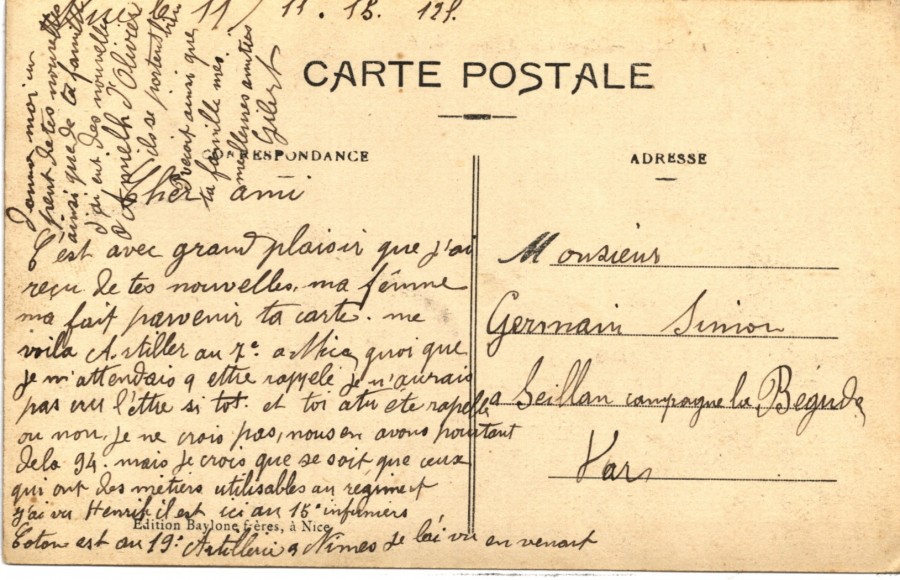 Nice le 11/11.15. 121.
CARTE POSTALE
CORRESPONDANCE
ADRESSE
Cher ami
C'est avec grand plaisir que j'ai
reçu de tes nouvelles, ma fèmme
ma fait parvenir ta carte. me
voila Artiller au 7e a Nice quoi que
je m'attendais a ettre rappelé je n'aurais
pas cru l'être si tot. et toi atu été rapellé
ou non, je ne crois pas, nous en avons pourtant
dela 94. mais je crois que se soit que ceux
qui ont des métiers utilisables au régiment
j'ai vu Henri il est ici au 15e infirmiers
Coton est au 19e Artillerie a Nimes je l'ai vu en venant
Edition Baylone frères, à Nice
Donne moi un
peut de tes nouvelles
ainsi que de ta famille
j'ai eut des nouvelles
d'Olivier
ils se portent bien
Reçoit ainsi que
ta famille mes
meilleures amitiés
Gilert
Monsieur
Germain Simon
a Seillan campagne la Béguda
Var